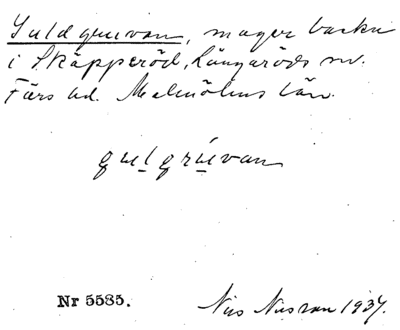 Guldgruvan, mager backe
i Skäpperöd, Långaröds sn.
Färs hd. Malmöhus län.
gulgrúvan
Nr 5585.
Nils Nilsson 1937.